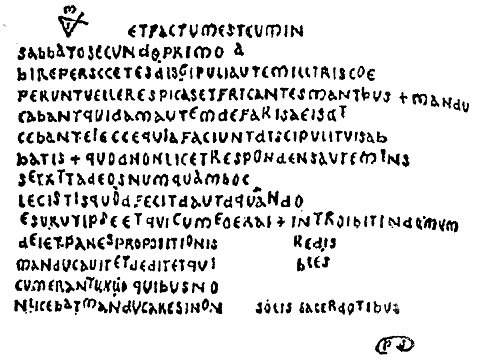 ETFACTUMESTCUMIN
SABBATOSECUNDOPRIMO A
BIREPERSCCETESDISGIPULIAUTEMILLITRISCOE
PERUNTVELLERESPICASETFRICANTESMANTBUS + MANDU
CABANTQUIDAMAUTEMDEFARISAEISDT
CEBANTEIECCEQUIAFACIUNTDTSCIPULITVISAB
BATIS + QUODNONLICETRESPONDENSAUTEMINS
SETXTTADEOSNUMQUAMBOC
LECISTISQUODFECITDAUTDQUANDO
ESURUTIPSEETQUICUMEOERAI + INTROIBITINDOMUM
DEIETPANESPROPOSITIONIS REDIS
MANDUCAUITETDEDITETQUI BLES
CUMERANTUXUO QUIBUSNO
NLICEBATMANDUCARESINON SOLIS SACERDOTIBUS
PS